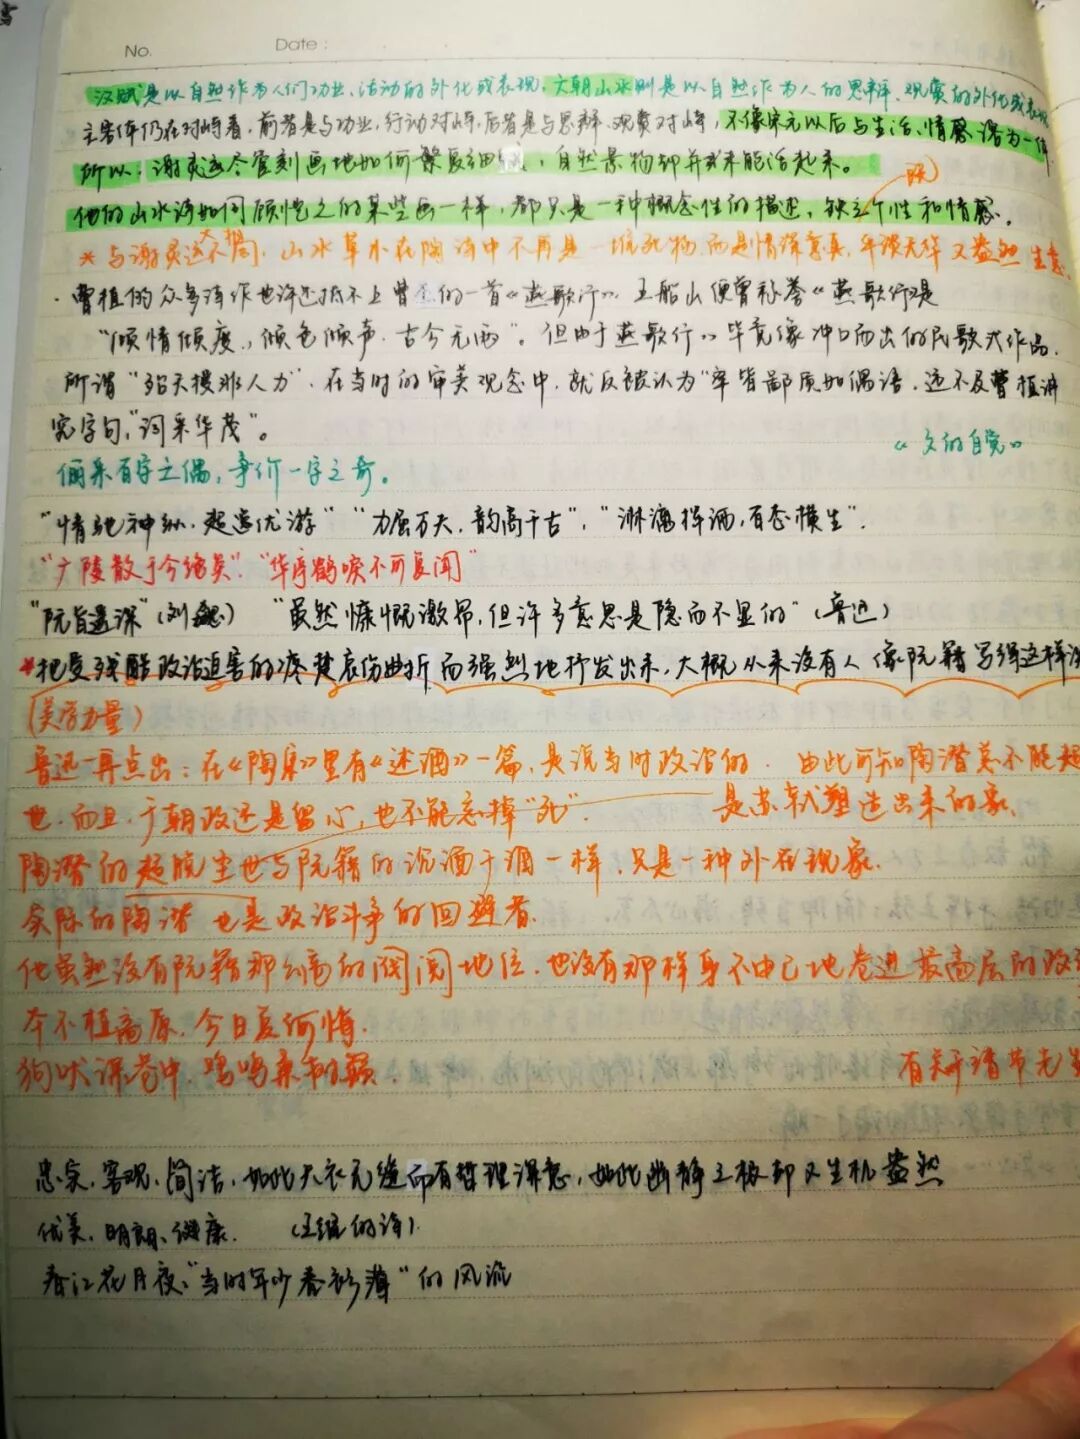 No.
Date :
汉赋是以自然作为人们功业、活动的外化或表现,六朝山水则是以自然作为人的思辨、观赏的外化或表现
主客体仍在对峙着,前者是与功业,行动对峙,后者是与思辨、观赏对峙,不像宋元以后与生活、情感溶为一体
所以,谢灵运尽管刻画地如何繁复细腻,自然景物却并未能活起来。
他的山水诗如同顾恺之的某些画一样,都只是一种概念性的描述,缺乏个性和情感。
* 与谢灵运大不相同,山水草木在陶诗中不再是一堆死物,而是情深意真,平淡无华又盎然生意
· 曹植的众多诗作也许还抵不上曹丕的一首《燕歌行》,王船山便曾称誉《燕歌行》是
“倾情倾度,倾色倾声,古今无两”。但由于燕歌行》毕竟像冲口而出的民歌式作品,
所谓“殆天授非人力”,在当时的审美观念中,就反被认为“率皆鄙质如偶语,还不及曹植讲
究字句,“词采华茂”。
《文的自觉》
俪采百字之偶,争价一字之奇。
“情驰神纵,超逸优游” “力屈万夫,韵高千古”,“淋漓挥洒,百态横生”.
“广陵散于今绝矣”.“华亭鹤唳不可复闻”
“阮旨遥深”(刘勰) “虽然慷慨激昂,但许多意思是隐而不显的”(鲁迅)
*把受残酷政治迫害的疼楚哀伤曲折而强烈地抒发出来,大概从来没有人像阮籍写得这样
(美学力量)
鲁迅一再点出:在《陶集》里有《述酒》一篇,是说当时政治的. 由此可知陶潜总不能超
世,而且,于朝政还是留心,也不能忘掉“死”. 是苏轼塑造出来的象.
陶潜的超脱尘世与阮籍的沉湎于酒一样,只是一种外在现象.
实际的陶潜 也是政治斗争的回避者.
他虽然没有阮籍那么高的阀阅地位,也没有那样身不由己地卷进最高层的政
本不植高原,今日复何悔.
狗吠深巷中,鸡鸣桑树颠. 有关于靖节先生
忠实,客观,简洁,如此天衣无缝而有哲理深意,如此幽静之极却又生机盎然
优美、明朗、健康. (王维的诗).
春江花月夜:“当时年少春衫薄”的风流